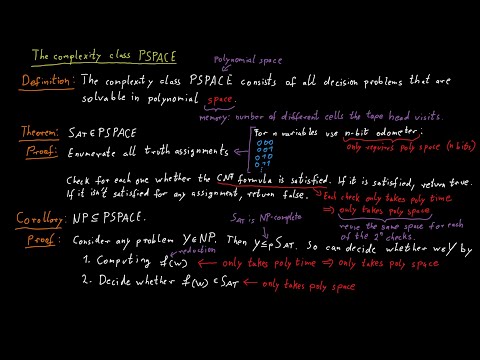 The complexity class PSPACE
Polynomial space
Definition: The complexity class PSPACE consists of all decision problems that are
solvable in polynomial space.
memory: number of different cells the tape head visits.
Theorem: SAT ∈ PSPACE
For n variables use n-bit odometer:
000
001
010
011
⋮
only requires poly space (n bits)
Proof: Enumerate all truth assignments
Check for each one whether the CNF formula is satisfied. If it is satisfied, return true.
If it isn't satisfied for any assignment, return false.
Each check only takes poly time
⇒ only takes poly space
reuse the same space for each
of the 2ⁿ checks.
Corollary: NP ⊆ PSPACE.
SAT is NP-complete
Proof: Consider any problem Y ∈ NP. Then Y ≤p SAT. So can decide whether w ∈ Y by
reduction
1. Computing f(w) ← only takes poly time ⇒ only takes poly space
2. Decide whether f(w) ∈ SAT ← only takes poly space